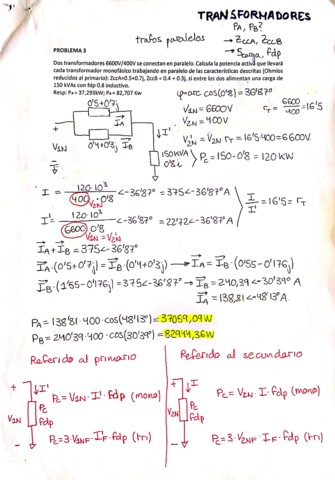 TRANSFORMADORES
trafos paralelos
PA, PB?
→ ZCCA, ZCCB
→ Scarga, fdp
PROBLEMA 3
Dos transformadores 6600V/400V se conectan en paralelo. Calcula la potencia activa que llevará
cada transformador monofásico trabajando en paralelo de las características descritas (Ohmios
reducidos al primario): ZccA=0.5+0.7j, ZccB = 0.4 + 0.3j, si entre los dos alimentan una carga de
150 kVAs con fdp 0.8 inductivo.
Resp: PA = 37,293kW; PB = 82,707 Kw
φ=arc cos(0'8) = 36'87º
0'5+0'7j
IA
I'
V1N
0'4+0'3j
IB
150kVA
0'8 i
V1N = 6600V
V2N = 400V
rT = 6600/400 = 16'5
V2N' = V2N · rT = 16'5·400 = 6600V.
Pc = 150·0'8 = 120 kW
I = 120·10³ / 400·0'8 <-36'87º = 375 <-36'87º A
V2N
I' = 120·10³ / 6600·0'8 <-36'87º = 22'72 <-36'87º A
V1N = V2N'
I/I' = 16'5 = rT
IA + IB = 375 <-36'87º
IA·(0'5+0'7j) = IB·(0'4+0'3j) → IA = IB·(0'55-0'176j)
IB·(1'55-0'176j) = 375 <-36'87º → IB = 240,39 <-30'39º A
IA = 138,81 <-48'13º A.
PA = 138'81·400·cos(48'13º) = 37059,09W
PB = 240'39·400·cos(30'39º) = 82944,36W
Referido al primario
Referido al secundario
+
I'
V1N
Pc
fdp
-
Pc = V1N · I' · fdp (mono)
Pc = 3·V1NF · I'F · fdp (tri)
+
I
V2N
Pc
fdp
-
Pc = V2N · I · fdp (mono)
Pc = 3·V2NF · IF · fdp (tri)